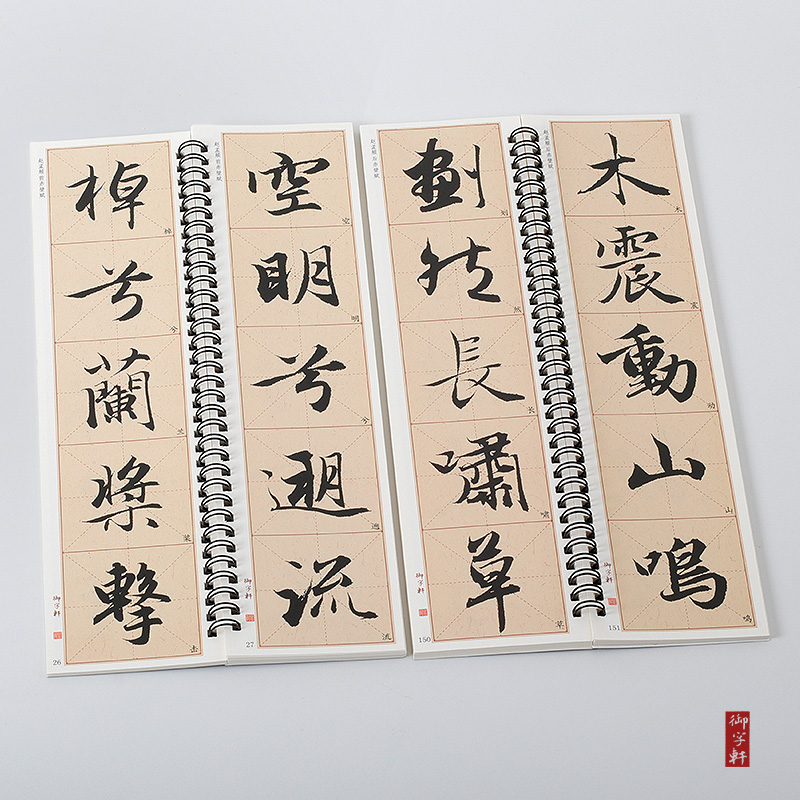 赵孟頫 前赤壁赋
棹兮蘭槳擊
棹
兮
兰
桨
击
御字軒
26
赵孟頫 前赤壁赋
空明兮遡流
空
明
兮
遡
流
27
赵孟頫 后赤壁赋
劃然長嘯草
划
然
长
啸
草
御字軒
150
赵孟頫 后赤壁赋
木震動山鳴
木
震
动
山
鸣
御字軒
151
御字軒